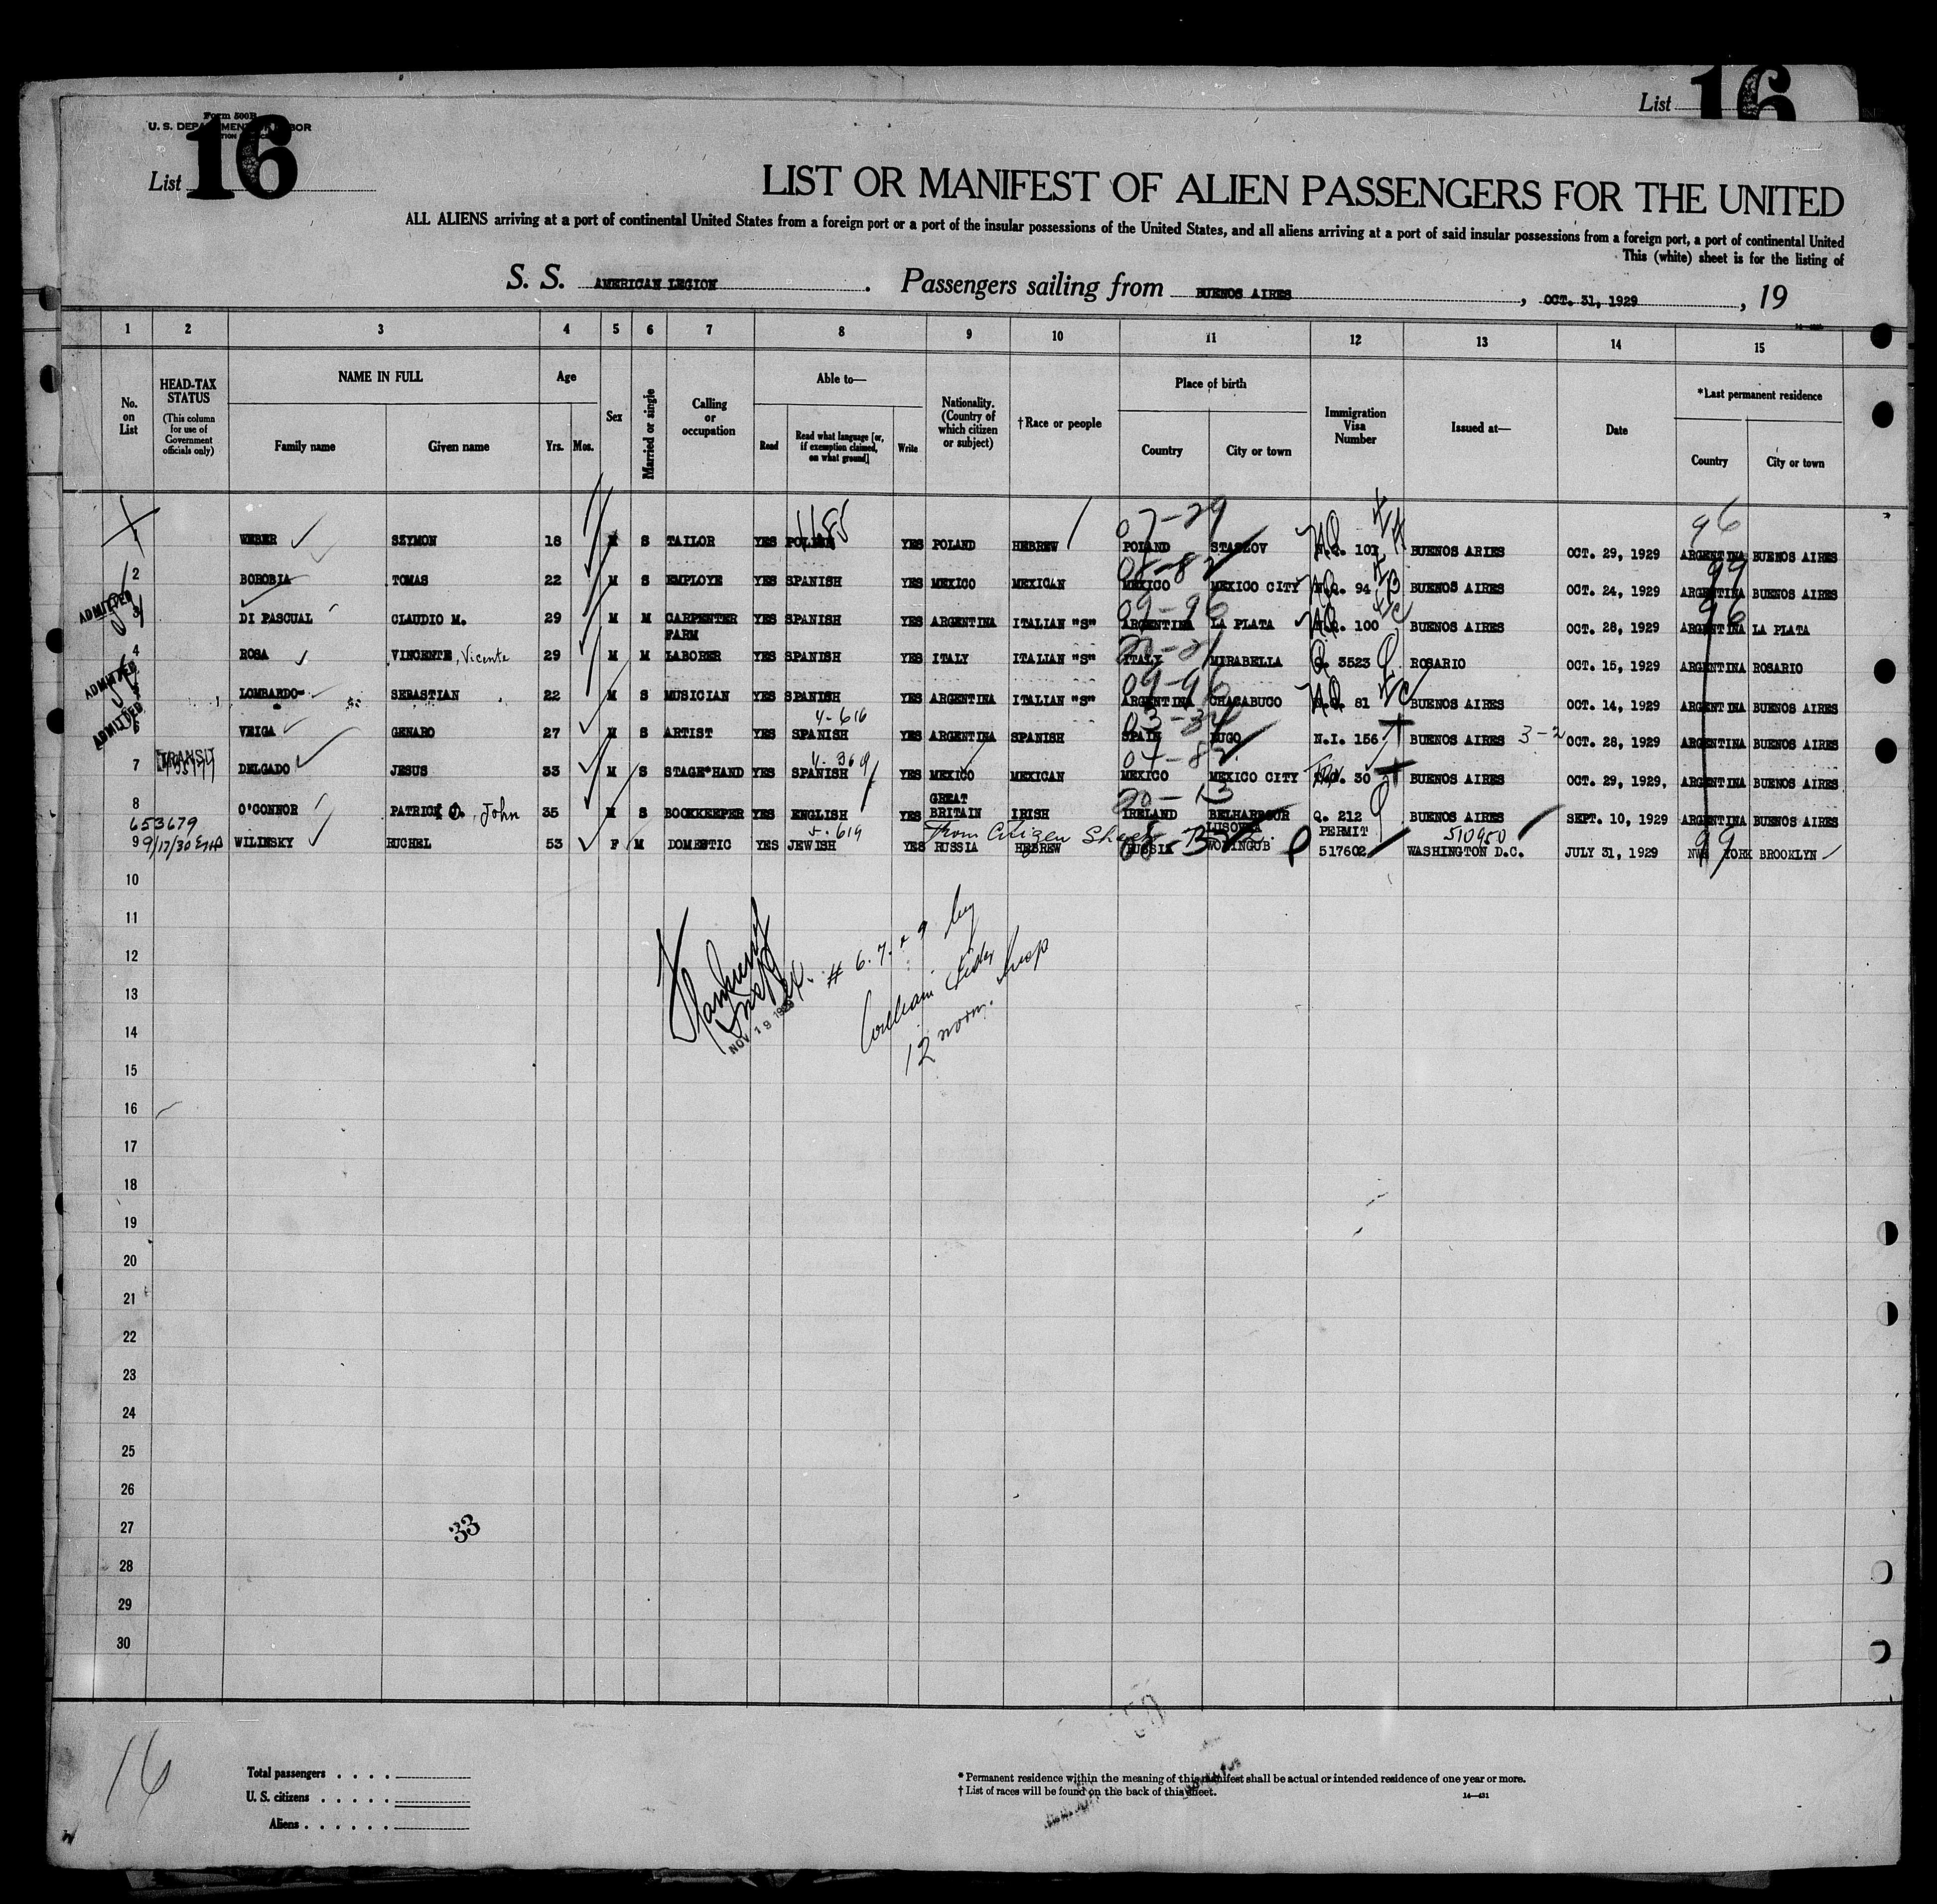 List 16
Form 500B
U. S. DEPARTMENT OF LABOR
List 16
LIST OR MANIFEST OF ALIEN PASSENGERS FOR THE UNITED
ALL ALIENS arriving at a port of continental United States from a foreign port or a port of the insular possessions of the United States, and all aliens arriving at a port of said insular possessions from a foreign port, a port of continental United
This (white) sheet is for the listing of
S. S. AMERICAN LEGION. Passengers sailing from BUENOS AIRES, OCT. 31, 1929, 19
1 2 3 4 5 6 7 8 9 10 11 12 13 14 15
No. on List
HEAD-TAX STATUS (This column for use of Government officials only)
NAME IN FULL
Family name Given name
Age
Yrs. Mos.
Sex
Married or single
Calling or occupation
Able to—
Read Read what language [or, if exemption claimed, on what ground] Write
Nationality. (Country of which citizen or subject)
†Race or people
Place of birth
Country City or town
Immigration Visa Number
Issued at—
Date
*Last permanent residence
Country City or town
07-29 96
WEBER SZYMON 18 M S TAILOR YES POLISH YES POLAND HEBREW POLAND STASZOV N.Q. 101 BUENOS ARIES OCT. 29, 1929 ARGENTINA BUENOS AIRES
99
2 BOROBIA TOMAS 22 M S EMPLOYE YES SPANISH YES MEXICO MEXICAN MEXICO MEXICO CITY N.Q. 94 BUENOS AIRES OCT. 24, 1929 ARGENTINA BUENOS AIRES
ADMITTED 09-96 96
3 DI PASCUAL CLAUDIO M. 29 M M CARPENTER YES SPANISH YES ARGENTINA ITALIAN "S" ARGENTINA LA PLATA N.Q. 100 BUENOS AIRES OCT. 28, 1929 ARGENTINA LA PLATA
4 ROSA VINCENTE, Vicente 29 M M FARM LABORER YES SPANISH YES ITALY ITALIAN "S" ITALY MIRABELLA Q. 3523 ROSARIO OCT. 15, 1929 ARGENTINA ROSARIO
ADMITTED 09-96
5 LOMBARDO- SEBASTIAN 22 M S MUSICIAN YES SPANISH YES ARGENTINA ITALIAN "S" ARGENTINA CHACABUCO N.Q. 81 BUENOS AIRES OCT. 14, 1929 ARGENTINA BUENOS AIRES
ADMITTED 4-616
6 VEIGA GENARO 27 M S ARTIST YES SPANISH YES ARGENTINA SPANISH SPAIN LUGO N.I. 156 BUENOS AIRES 3-2 OCT. 28, 1929 ARGENTINA BUENOS AIRES
TRANSIT 4-369 04-82
7 DELGADO JESUS 33 M S STAGE*HAND YES SPANISH YES MEXICO MEXICAN MEXICO MEXICO CITY 30 BUENOS AIRES OCT. 29, 1929, ARGENTINA BUENOS AIRES
20-13
8 O'CONNOR PATRICK J., John 35 M S BOOKKEEPER YES ENGLISH YES GREAT BRITAIN IRISH IRELAND BELHARBOUR Q. 212 BUENOS AIRES SEPT. 10, 1929 ARGENTINA BUENOS AIRES
653679 5-619 From Citizen Sheet 510950
9 9/17/30 WILINSKY RUCHEL 53 F M DOMESTIC YES JEWISH YES RUSSIA HEBREW RUSSIA PERMIT 517602 WASHINGTON D.C. JULY 31, 1929 YORK BROOKLYN
99
10
11
# 6. 7. + 9 by
12
13
14
NOV 19 1929
12 norm. Insp
15
16
17
18
19
20
21
22
23
24
25
26
27
33
28
29
30
16
Total passengers
U. S. citizens
Aliens
* Permanent residence within the meaning of this manifest shall be actual or intended residence of one year or more.
† List of races will be found on the back of this sheet.
14—431